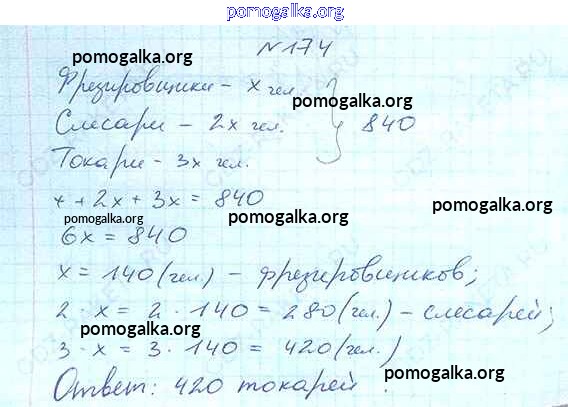 pomogalka.org
№174
pomogalka.org
Фрезировщики - x чел.
pomogalka.org
Слесари - 2x чел. } 840
Токари - 3x чел.
x + 2x + 3x = 840
pomogalka.org
pomogalka.org
pomogalka.org
6x = 840
x = 140 (чел.) - фрезировщиков;
pomogalka.org
2 · x = 2 · 140 = 280 (чел.) - слесарей;
pomogalka.org
3 · x = 3 · 140 = 420 (чел.)
Ответ: 420 токарей.
pomogalka.org